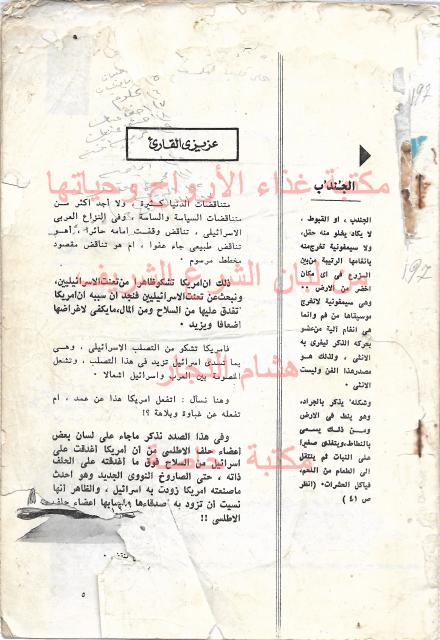 عزيزى القارئ
متناقضات الدنيا كثيرة ، ولا أجد أكثر من
متناقضات السياسة والساسة ، وفى النزاع العربى
الاسرائيلى ، تناقض وقفت امامه حائرا ، أهو
تناقض طبيعى جاء عفوا ، ام هو تناقض مقصود
مخطط مرسوم .
ذلك ان امريكا تشكو ظاهرا من تعنت الاسرائيليين،
ونبحث عن تعنت الاسرائيليين فنجد أن سببه ان امريكا
تغدق عليها من السلاح ومن المال، مايكفى لاغراضها
اضعافا ويزيد .
فامريكا تشكو من التصلب الاسرائيلى ، وهى
بما تسدى اسرائيل تزيد فى هذا التصلب ، وتشعل
الخصومة بين العرب واسرائيل اشعالا .
وهنا نسأل : اتفعل امريكا هذا عن عمد ، ام
تفعله عن غباوة وبلاهة ؟!
وفى هذا الصدد نذكر ماجاء على لسان بعض
اعضاء حلف الاطلسى من ان امريكا اغدقت على
اسرائيل من السلاح فوق ما اغدقته على الحلف
ذاته ، حتى الصاروخ النووى الجديد وهو أحدث
ماصنعته امريكا زودت به اسرائيل ، والظاهر أنها
نسيت أن تزود به أصدقاءها اعضاء حلف
الاطلسى !!
٥
الجندب
الجندب ، او القبوط ،
لا يكاد يخلو منه حقل،
ولا سيمفونية تخرج منه
بانغامها الرتيبة من بين
الزروع فى أى مكان
اخضر من الارض .
وهى سيمفونية لاتخرج
موسيقاها من فم وانما
هى انغام آلية من عضو
يحركه الذكر ليغرى به
الانثى ، ولذلك هو
مصدر هذا الفن وليست
الانثى .
وشكله يذكر بالجراد،
وهو ينط فى الارض
ومن ذلك يسمى
بالنطاط، ويتغذى صغيرا
على النبات ثم ينتقل
الى الطعام من اللحوم
فيأكل الحشرات . (انظر
ص ٤١)
مكتبة غذاء الأرواح وحياتها
من لسان الشرع الشريف
هشام النجار
مكتبة خاصة